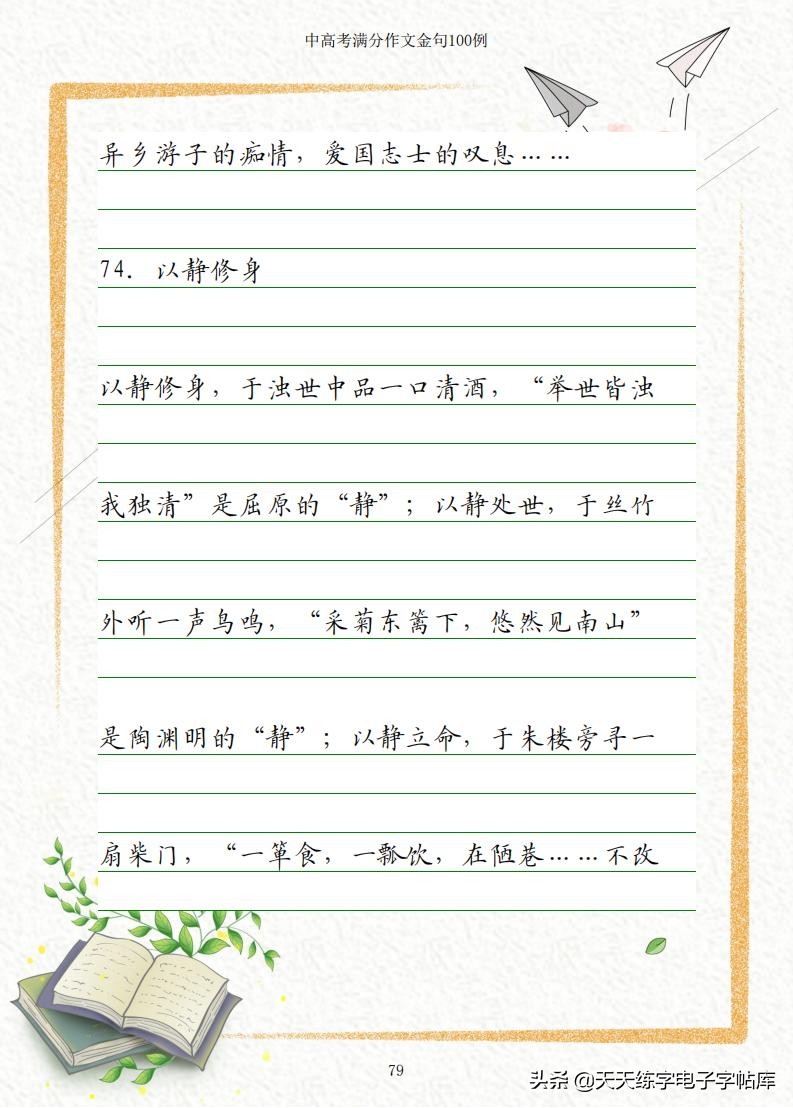 中高考满分作文金句100例
异乡游子的痴情，爱国志士的叹息……
74. 以静修身
以静修身，于浊世中品一口清酒，“举世皆浊
我独清”是屈原的“静”；以静处世，于丝竹
外听一声鸟鸣，“采菊东篱下，悠然见南山”
是陶渊明的“静”；以静立命，于朱楼旁寻一
扇柴门，“一箪食，一瓢饮，在陋巷……不改
79
头条 @天天练字电子字帖库